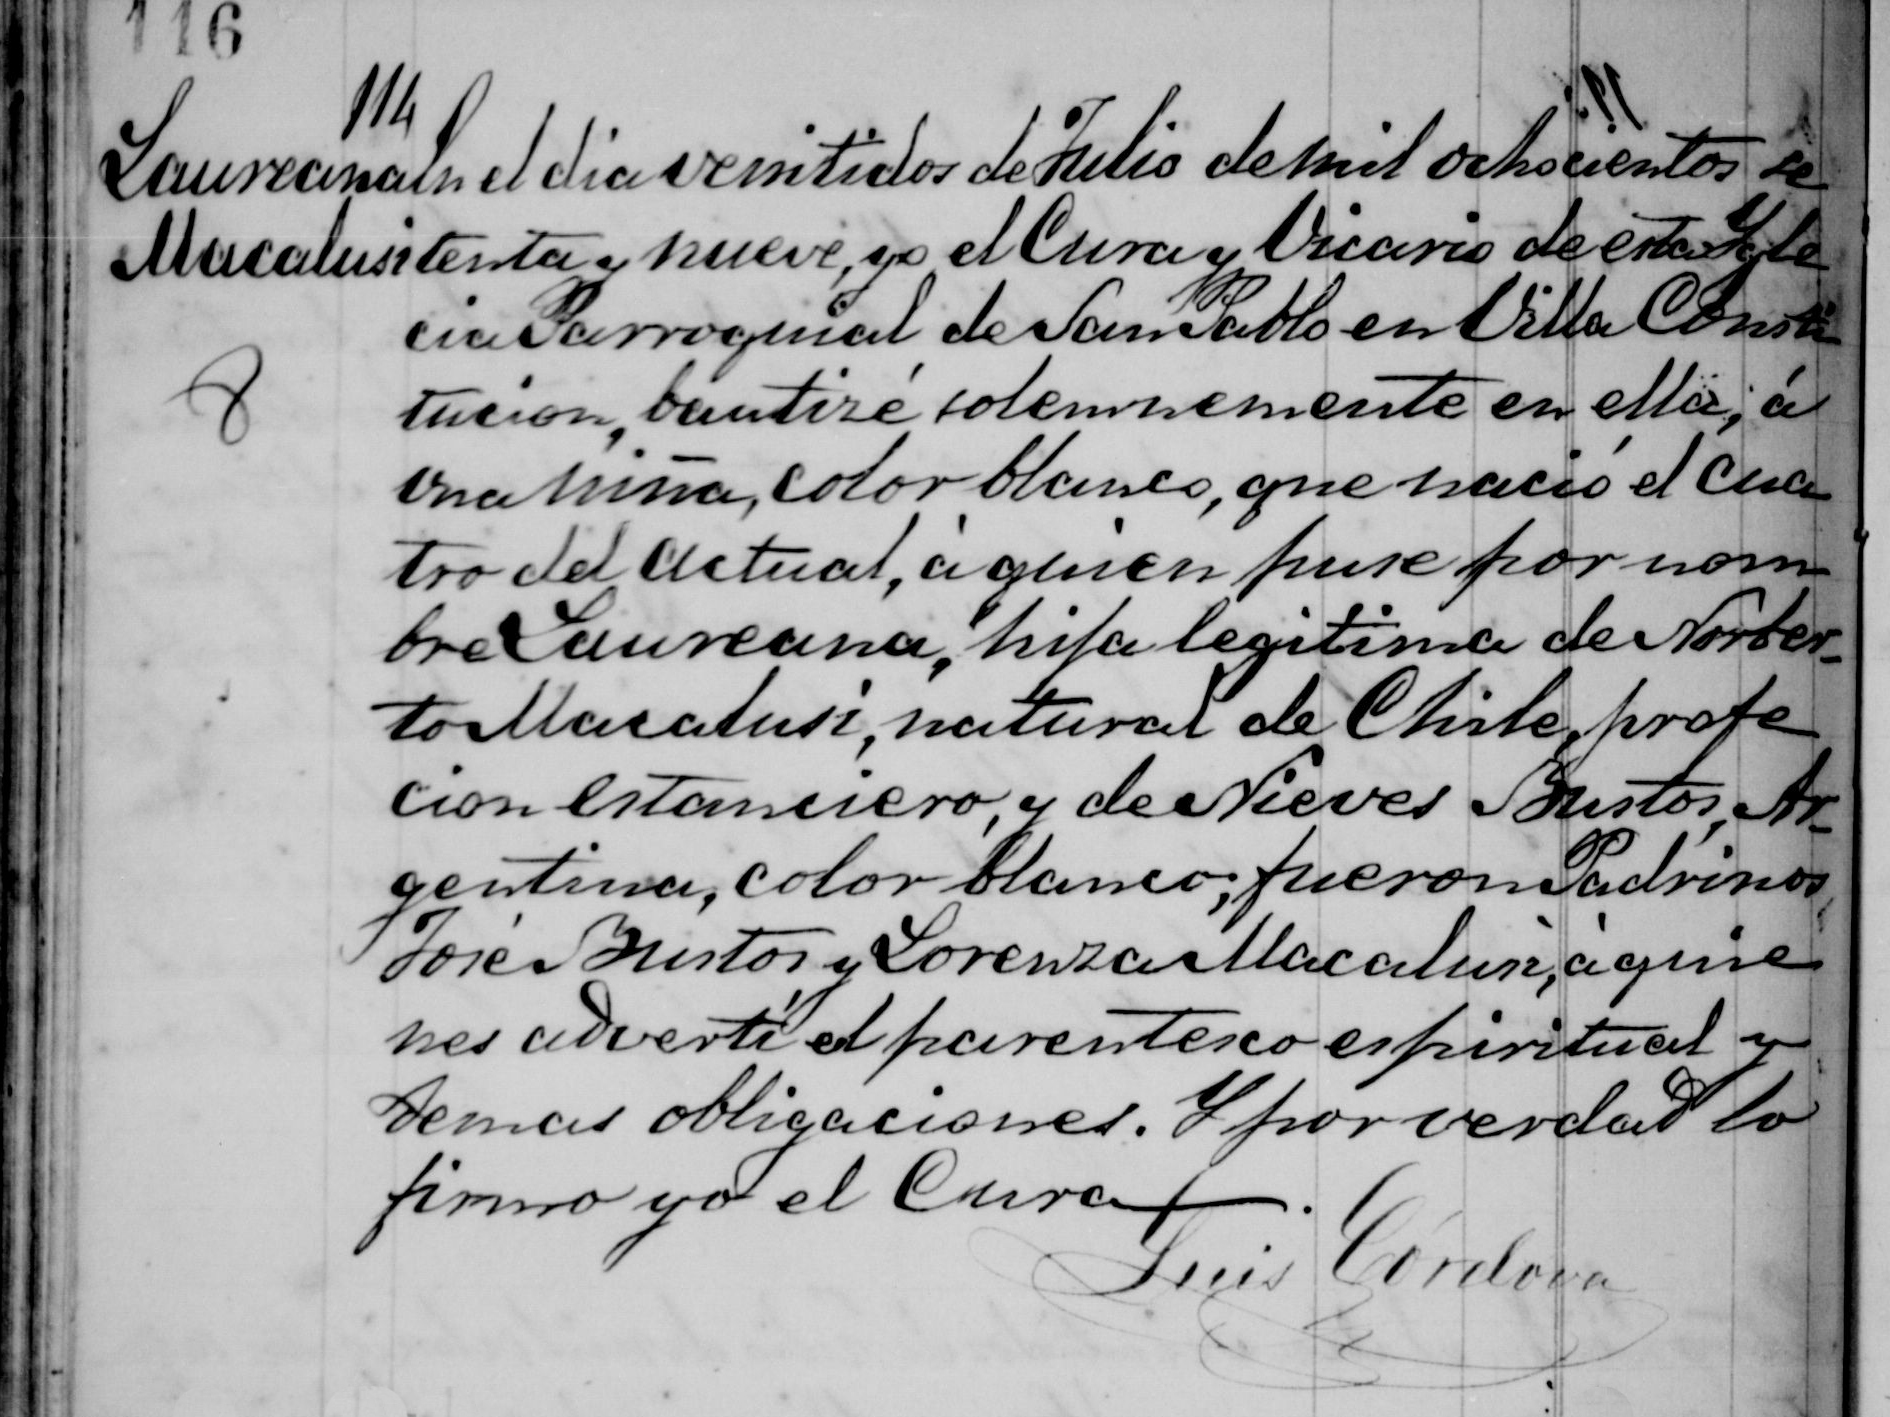 116
114
Laureana En el dia veintidos de Julio de mil ochocientos se
Macalusi tenta y nueve, yo el Cura y Vicario de esta Igle
cia Parroquial de San Pablo en Villa Consti
tucion, bautizé solemnemente en ella, á
una niña, color blanco, que nació el cua
tro del actual, á quien puse por nom
bre Laureana, hija legitima de Norber-
to Macalusi, natural de Chile, profe
cion estanciero, y de Nieves Bustos, Ar-
gentina, color blanco; fueron Padrinos
José Bustos y Lorenza Macalusi, á quie
nes advertí el parentesco espiritual y
demas obligaciones. Y por verdad lo
firmo yo el Cura.
Luis Córdova